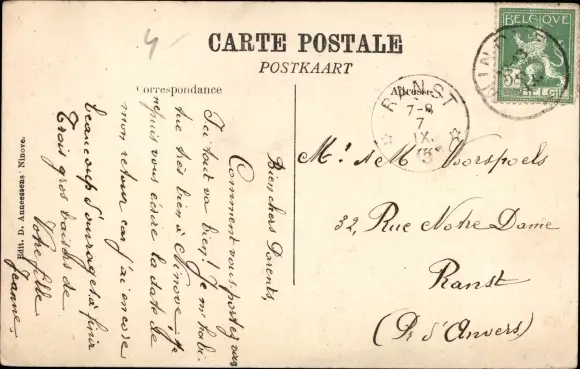 CARTE POSTALE
POSTKAART
Correspondance
Adresse
BELGIQUE
BELGIË
RANST
7-8
7
IX
Bien chers Parents,
Comment vous portez vous
Ici tout va bien! Je m'habi-
tue très bien à Ninove. Je
puis vous écrire la date de
mon retour car j'ai encore
beaucoup d'ouvrages à finir
Trois gros baisers de
Votre fille
Jeanne.
Mr. & M Voorspoels
32, Rue Notre Dame
Ranst
(Pr. d'Anvers)
Edit. D. Anneessens Ninove.